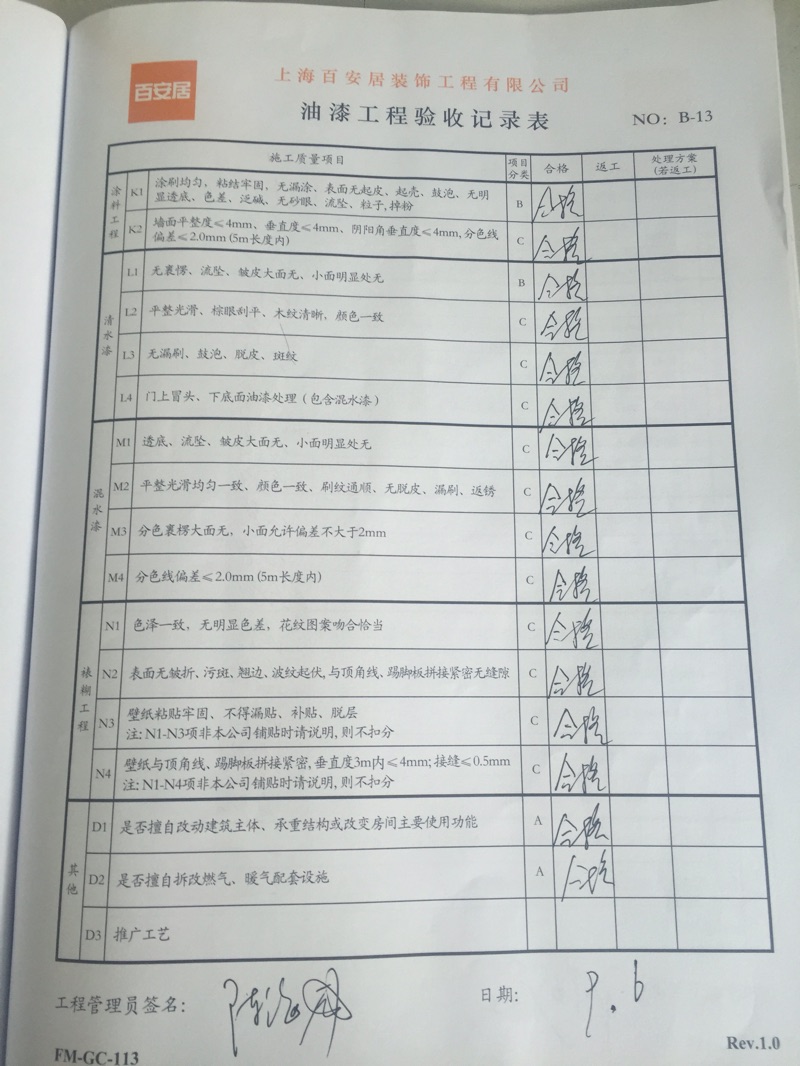 百安居
上海百安居装饰工程有限公司
油漆工程验收记录表
NO: B-13
施工质量项目 项目分类 合格 返工 处理方案(若返工)
涂料工程
K1 涂刷均匀, 粘结牢固, 无漏涂、表面无起皮、起壳、鼓泡、无明
显透底、色差、泛碱、无砂眼、流坠、粒子,掉粉 B 合格
K2 墙面平整度≤4mm、垂直度≤4mm、阴阳角垂直度≤4mm,分色线
偏差≤2.0mm(5m长度内) C 合格
清水漆
L1 无裹愣、流坠、皱皮大面无、小面明显处无 B 合格
L2 平整光滑、棕眼刮平、木纹清晰, 颜色一致 C 合格
L3 无漏刷、鼓泡、脱皮、斑纹 C 合格
L4 门上冒头、下底面油漆处理(包含混水漆) C 合格
混水漆
M1 透底、流坠、皱皮大面无、小面明显处无 C 合格
M2 平整光滑均匀一致、颜色一致、刷纹通顺、无脱皮、漏刷、返锈 C 合格
M3 分色裹楞大面无, 小面允许偏差不大于2mm C 合格
M4 分色线偏差≤2.0mm(5m长度内) C 合格
裱糊工程
N1 色泽一致, 无明显色差, 花纹图案吻合恰当 C 合格
N2 表面无皱折、污斑、翘边、波纹起伏,与顶角线、踢脚板拼接紧密无缝隙 C 合格
N3 壁纸粘贴牢固、不得漏贴、补贴、脱层
注: N1-N3项非本公司铺贴时请说明,则不扣分 C 合格
N4 壁纸与顶角线、踢脚板拼接紧密,垂直度3m内≤4mm; 接缝≤0.5mm
注: N1-N4项非本公司铺贴时请说明,则不扣分 C 合格
其他
D1 是否擅自改动建筑主体、承重结构或改变房间主要使用功能 A 合格
D2 是否擅自拆改燃气、暖气配套设施 A 合格
D3 推广工艺
工程管理员签名:
日期: 9.6
FM-GC-113
Rev.1.0